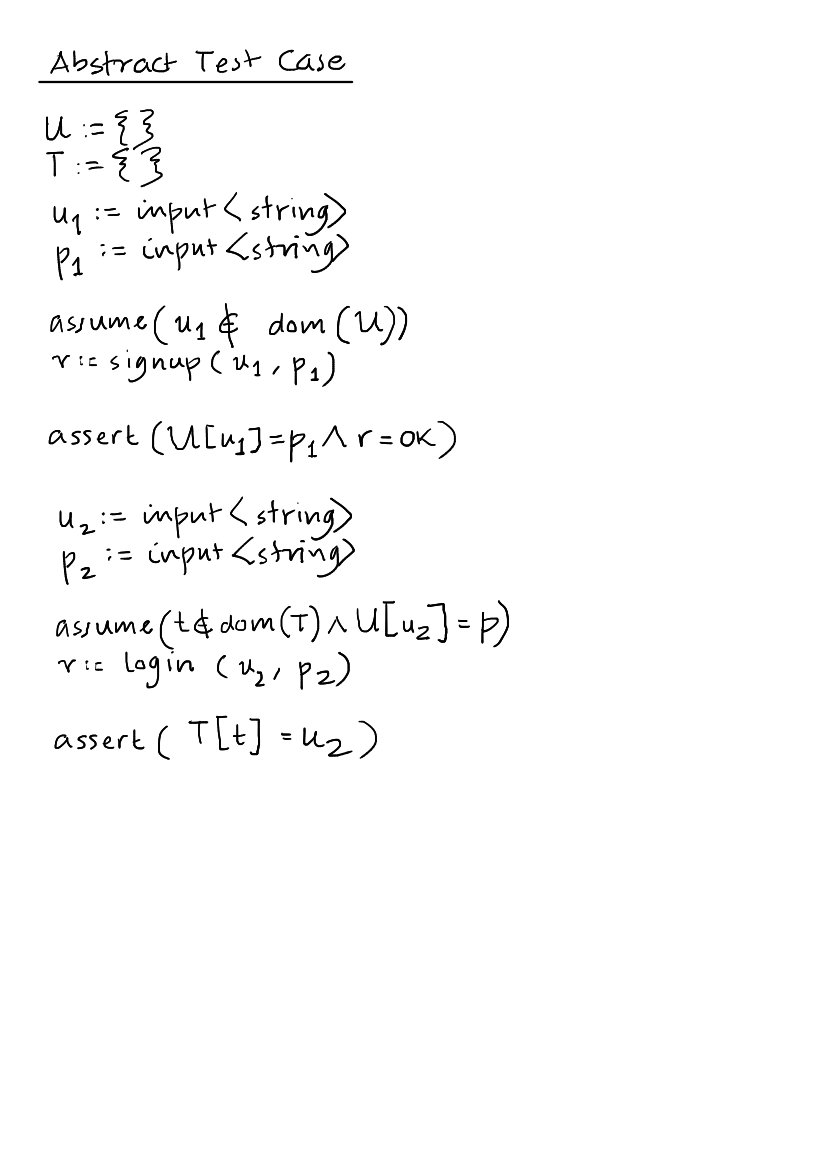 Abstract Test Case
U := { }
T := { }
u₁ := input<string>
p₁ := input<string>
assume(u₁ ∉ dom(U))
r := signup(u₁, p₁)
assert(U[u₁]=p₁ ∧ r = OK)
u₂ := input<string>
p₂ := input<string>
assume(t ∉ dom(T) ∧ U[u₂] = p)
r := login (u₂, p₂)
assert( T[t] = u₂ )